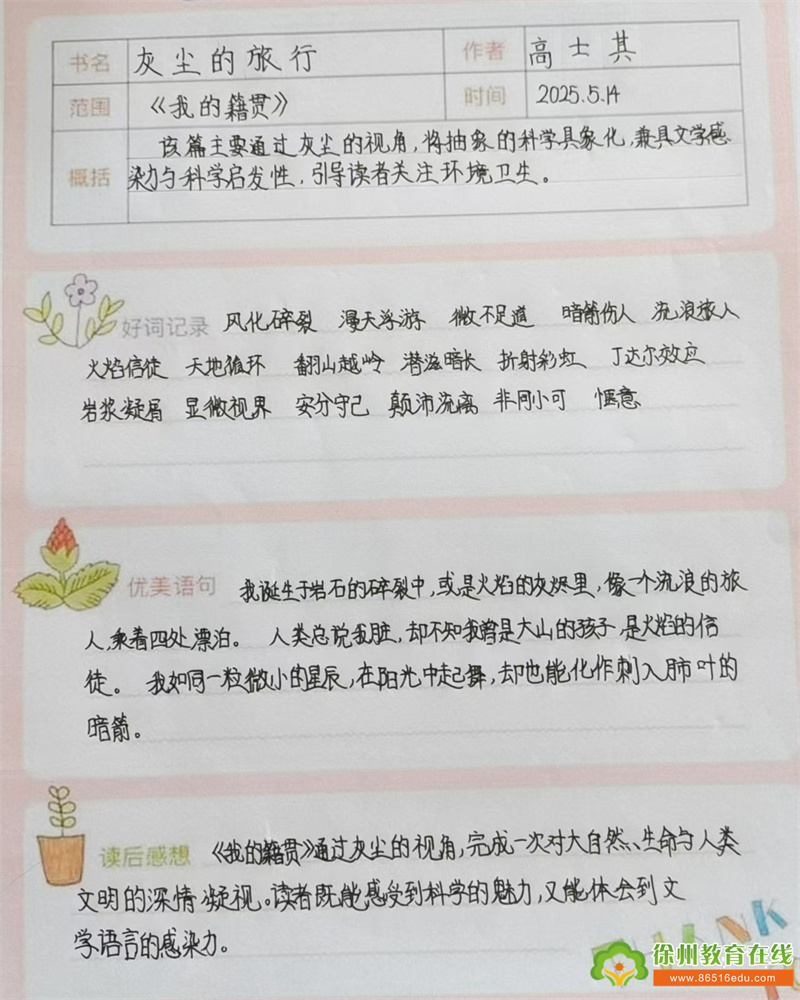 书名 灰尘的旅行 作者 高士其
范围 《我的籍贯》 时间 2025.5.14
概括 该篇主要通过灰尘的视角，将抽象的科学具象化，兼具文学感
染力与科学启发性，引导读者关注环境卫生。
好词记录 风化碎裂 漫天浮游 微不足道 暗箭伤人 流浪旅人
火焰信徒 天地循环 翻山越岭 潜滋暗长 折射彩虹 丁达尔效应
岩浆凝屑 显微视界 安分守己 颠沛流离 非同小可 惬意
优美语句 我诞生于岩石的碎裂中，或是火焰的灰烬里，像一个流浪的旅
人，乘着四处漂泊。 人类总说我脏，却不知我曾是大山的孩子，是火焰的信
徒。 我如同一粒微小的星辰，在阳光中起舞，却也能化作刺入肺叶的
暗箭。
读后感想 《我的籍贯》通过灰尘的视角，完成一次对大自然、生命与人类
文明的深情凝视。读者既能感受到科学的魅力，又能体会到文
学语言的感染力。
徐州教育在线
www.86516edu.com